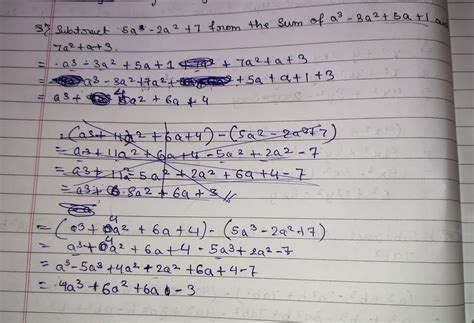 37 Subtract 5a³ - 2a² + 7 from the sum of a³ - 3a² + 5a + 1 and
7a² + a + 3.
= a³ - 3a² + 5a + 1 + 7a² + a + 3
= a³ - 3a² + 7a² + 5a + a + 1 + 3
= a³ + 4a² + 6a + 4
= (a³ + 11a² + 6a + 4) - (5a² - 2a² + 7)
= a³ + 11a² + 6a + 4 - 5a² + 2a² - 7
= a³ + 11a² - 5a² + 2a² + 6a + 4 - 7
= a³ + 8a² + 6a + 3
= (a³ + 4a² + 6a + 4) - (5a³ - 2a² + 7)
= a³ + 4a² + 6a + 4 - 5a³ + 2a² - 7
= a³ - 5a³ + 4a² + 2a² + 6a + 4 - 7
= 4a³ + 6a² + 6a - 3